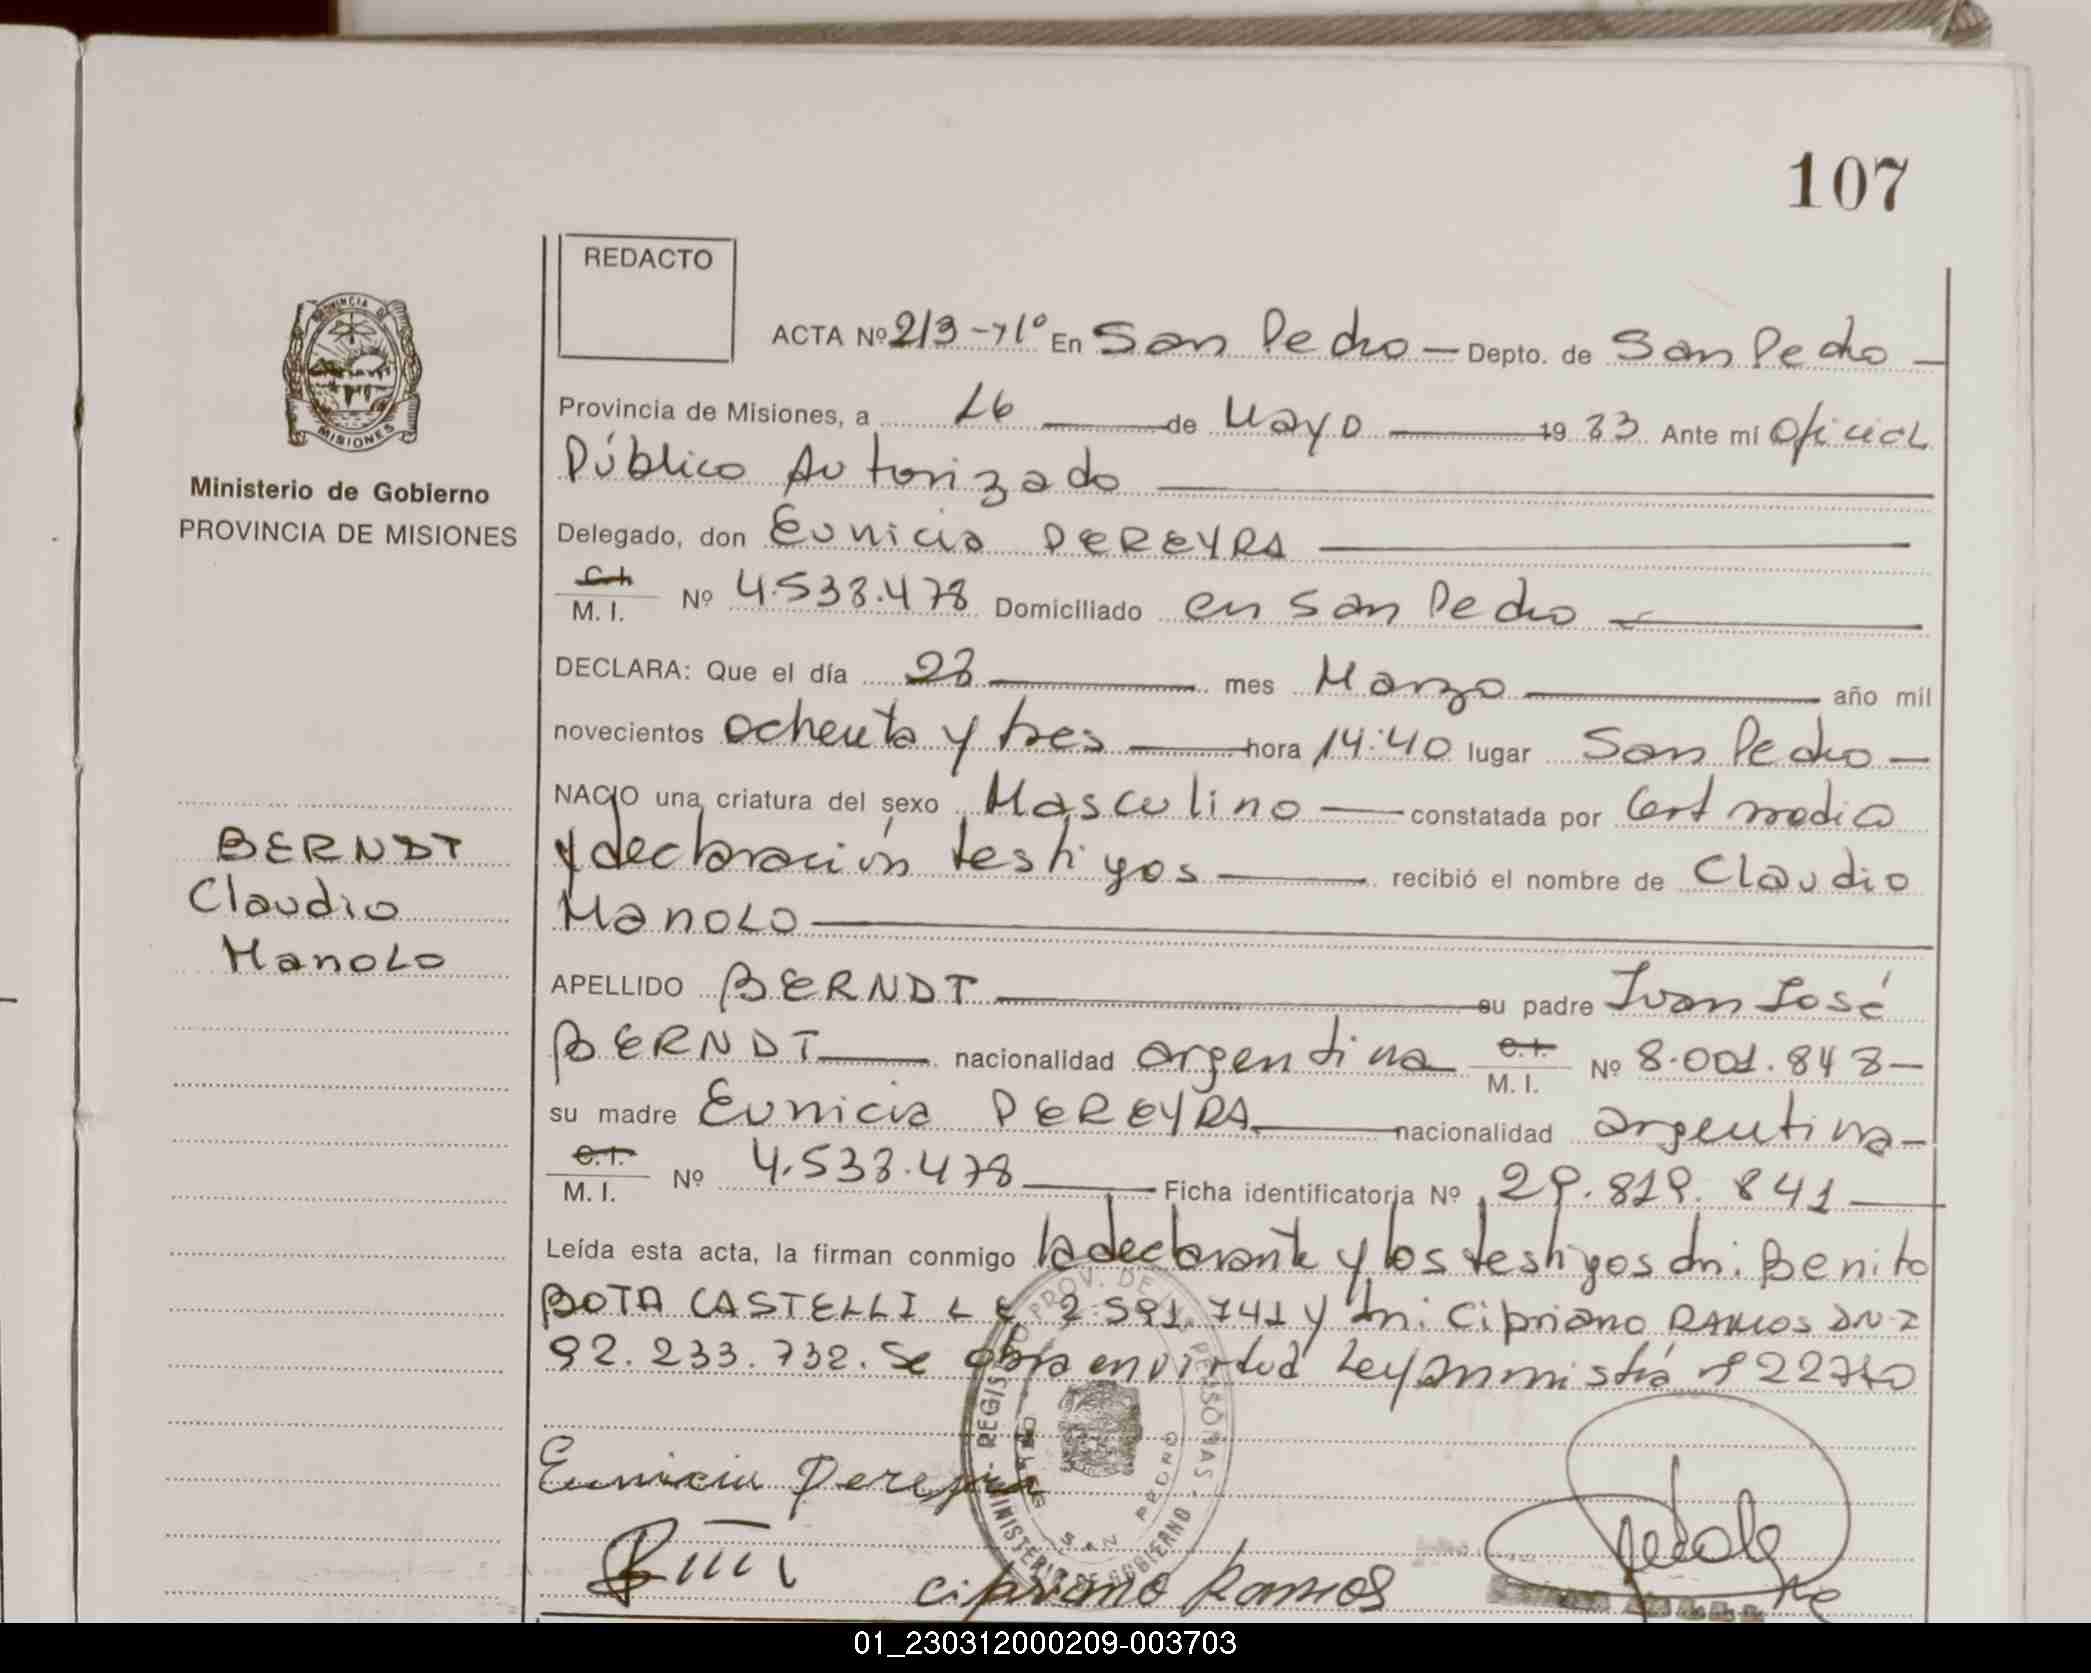 107
REDACTO
ACTA Nº 213-71º En San Pedro — Depto. de San Pedro —
PROVINCIA DE
MISIONES
Provincia de Misiones, a 16 de Mayo 1983 Ante mí Oficial
Público Autorizado
Ministerio de Gobierno
PROVINCIA DE MISIONES
Delegado, don Eunicia PEREYRA
C.I.
M. I. Nº 4.533.478 Domiciliado en San Pedro
DECLARA: Que el día 23 mes Marzo año mil
novecientos ochenta y tres hora 14:40 lugar San Pedro —
NACIO una criatura del sexo Masculino constatada por Cert medico
y declaración testigos recibió el nombre de Claudio
Manolo
BERNDT
Claudio
Manolo
APELLIDO BERNDT su padre Ivan José
BERNDT nacionalidad argentina C.I. M. I. Nº 8.001.848 —
su madre Eunicia PEREYRA nacionalidad argentina —
C.I.
M. I. Nº 4.533.478 Ficha identificatoria Nº 29.819.841
Leída esta acta, la firman conmigo la declarante y los testigos dn: Benito
BOTA CASTELLI L E 2 591 741 y dn: Cipriano RAMOS DNI
92.233.732. Se obra en virtud Ley Ammistía nº 22740
REGISTRO PROV. DE LAS PERSONAS
SAN PEDRO
MINISTERIO DE GOBIERNO
Eunicia Pereyra
Cipriano Ramos
01_230312000209-003703